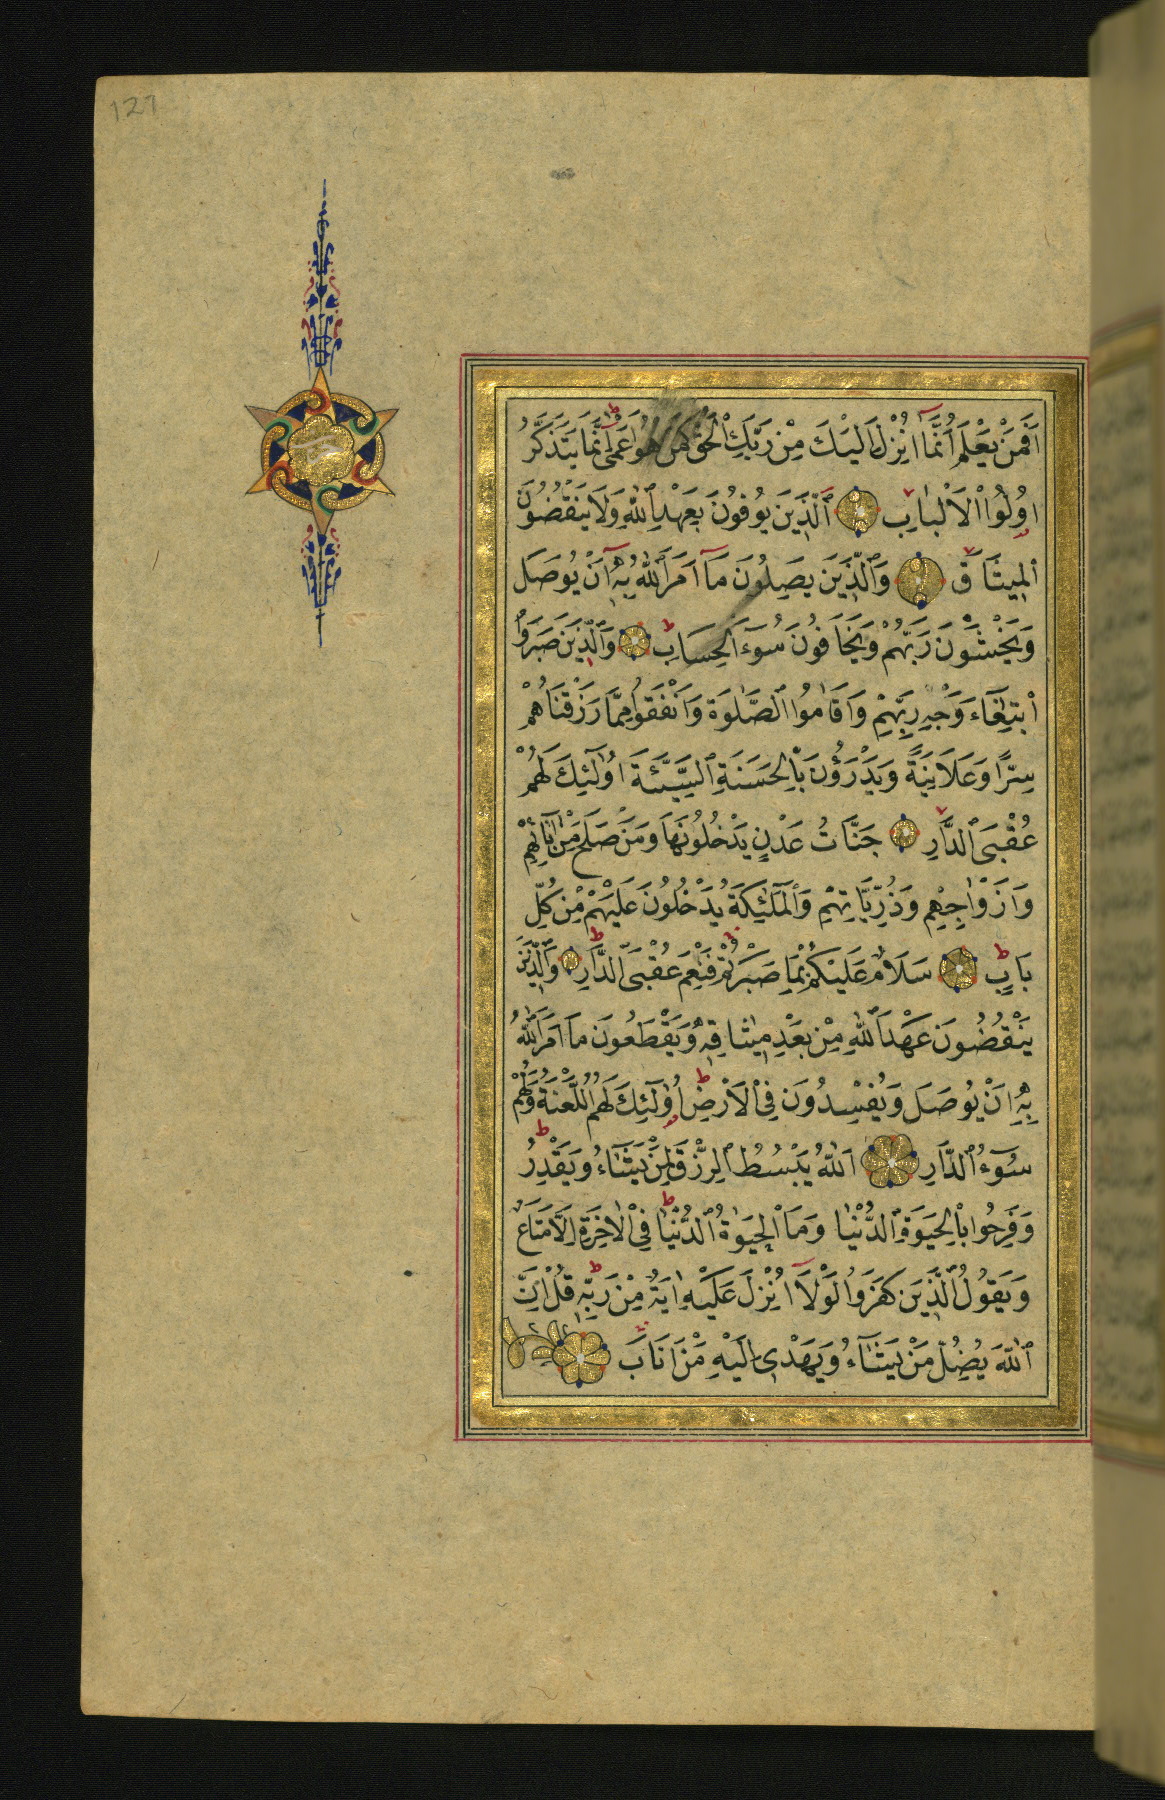 127
اَفَمَنْ يَعْلَمُ اَنَّمَٓا اُنْزِلَ اِلَيْكَ مِنْ رَبِّكَ الْحَقُّ كَمَنْ هُوَ اَعْمٰى اِنَّمَا يَتَذَكَّرُ
اُولُوا الْاَلْبَابِ اَلَّذِينَ يُوفُونَ بِعَهْدِ اللّٰهِ وَلَا يَنْقُضُونَ
الْمِيثَاقَ وَالَّذِينَ يَصِلُونَ مَٓا اَمَرَ اللّٰهُ بِهٖٓ اَنْ يُوصَلَ
وَيَخْشَوْنَ رَبَّهُمْ وَيَخَافُونَ سُٓوءَ الْحِسَابِ وَالَّذِينَ صَبَرُوا
ابْتِغَٓاءَ وَجْهِ رَبِّهِمْ وَاَقَامُوا الصَّلٰوةَ وَاَنْفَقُوا مِمَّا رَزَقْنَاهُمْ
سِرًّا وَعَلَانِيَةً وَيَدْرَؤُنَ بِالْحَسَنَةِ السَّيِّئَةَ اُولٰٓئِكَ لَهُمْ
عُقْبَى الدَّارِ جَنَّاتُ عَدْنٍ يَدْخُلُونَهَا وَمَنْ صَلَحَ مِنْ اٰبَٓائِهِمْ
وَاَزْوَاجِهِمْ وَذُرِّيَّاتِهِمْ وَالْمَلٰٓئِكَةُ يَدْخُلُونَ عَلَيْهِمْ مِنْ كُلِّ
بَابٍ سَلَامٌ عَلَيْكُمْ بِمَا صَبَرْتُمْ فَنِعْمَ عُقْبَى الدَّارِ وَالَّذِينَ
يَنْقُضُونَ عَهْدَ اللّٰهِ مِنْ بَعْدِ مِيثَاقِهٖ وَيَقْطَعُونَ مَٓا اَمَرَ اللّٰهُ
بِهٖٓ اَنْ يُوصَلَ وَيُفْسِدُونَ فِي الْاَرْضِ اُولٰٓئِكَ لَهُمُ اللَّعْنَةُ وَلَهُمْ
سُٓوءُ الدَّارِ اَللّٰهُ يَبْسُطُ الرِّزْقَ لِمَنْ يَشَٓاءُ وَيَقْدِرُ
وَفَرِحُوا بِالْحَيٰوةِ الدُّنْيَا وَمَا الْحَيٰوةُ الدُّنْيَا فِي الْاٰخِرَةِ اِلَّا مَتَاعٌ
وَيَقُولُ الَّذِينَ كَفَرُوا لَوْلَٓا اُنْزِلَ عَلَيْهِ اٰيَةٌ مِنْ رَبِّهٖ قُلْ اِنَّ
اللّٰهَ يُضِلُّ مَنْ يَشَٓاءُ وَيَهْدِى اِلَيْهِ مَنْ اَنَابَ